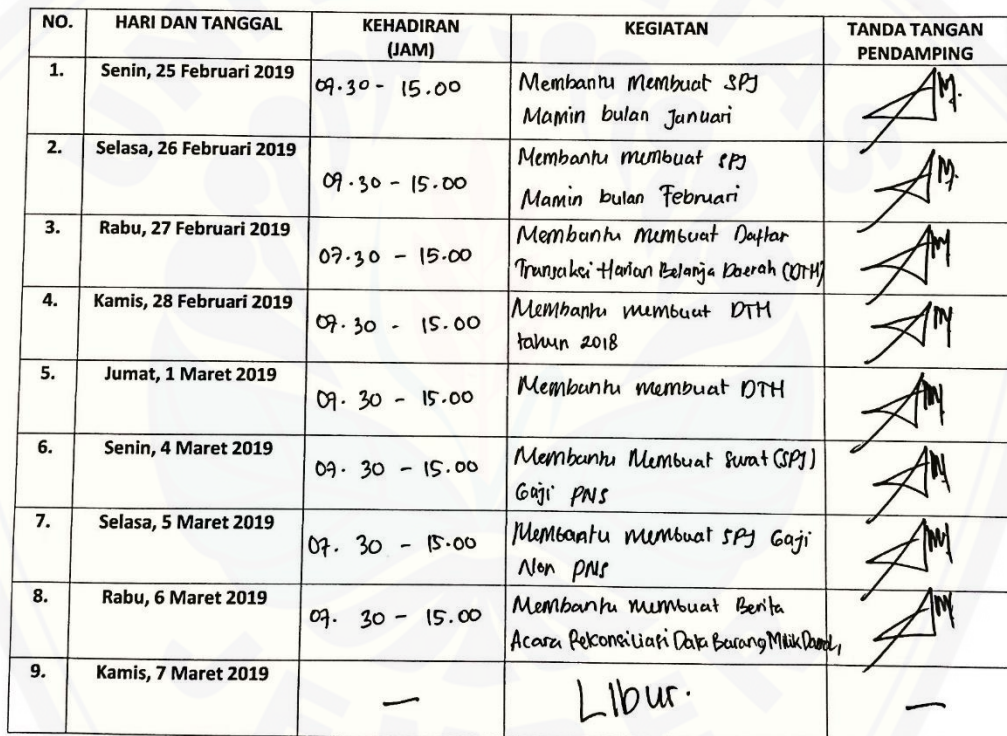 NO. HARI DAN TANGGAL KEHADIRAN (JAM) KEGIATAN TANDA TANGAN PENDAMPING
1. Senin, 25 Februari 2019 07.30 - 15.00 Membantu Membuat SPJ
Mamin bulan Januari
2. Selasa, 26 Februari 2019 07.30 - 15.00 Membantu membuat SPJ
Mamin bulan Februari
3. Rabu, 27 Februari 2019 07.30 - 15.00 Membantu membuat Daftar
Transaksi Harian Belanja Daerah (DTH)
4. Kamis, 28 Februari 2019 07.30 - 15.00 Membantu membuat DTH
tahun 2018
5. Jumat, 1 Maret 2019 07.30 - 15.00 Membantu membuat DTH
6. Senin, 4 Maret 2019 07.30 - 15.00 Membantu Membuat Surat (SPJ)
Gaji PNS
7. Selasa, 5 Maret 2019 07.30 - 15.00 Membantu membuat SPJ Gaji
Non PNS
8. Rabu, 6 Maret 2019 07.30 - 15.00 Membantu membuat Berita
Acara Rekonsiliasi Data Barang Milik Daerah
9. Kamis, 7 Maret 2019 — Libur. —